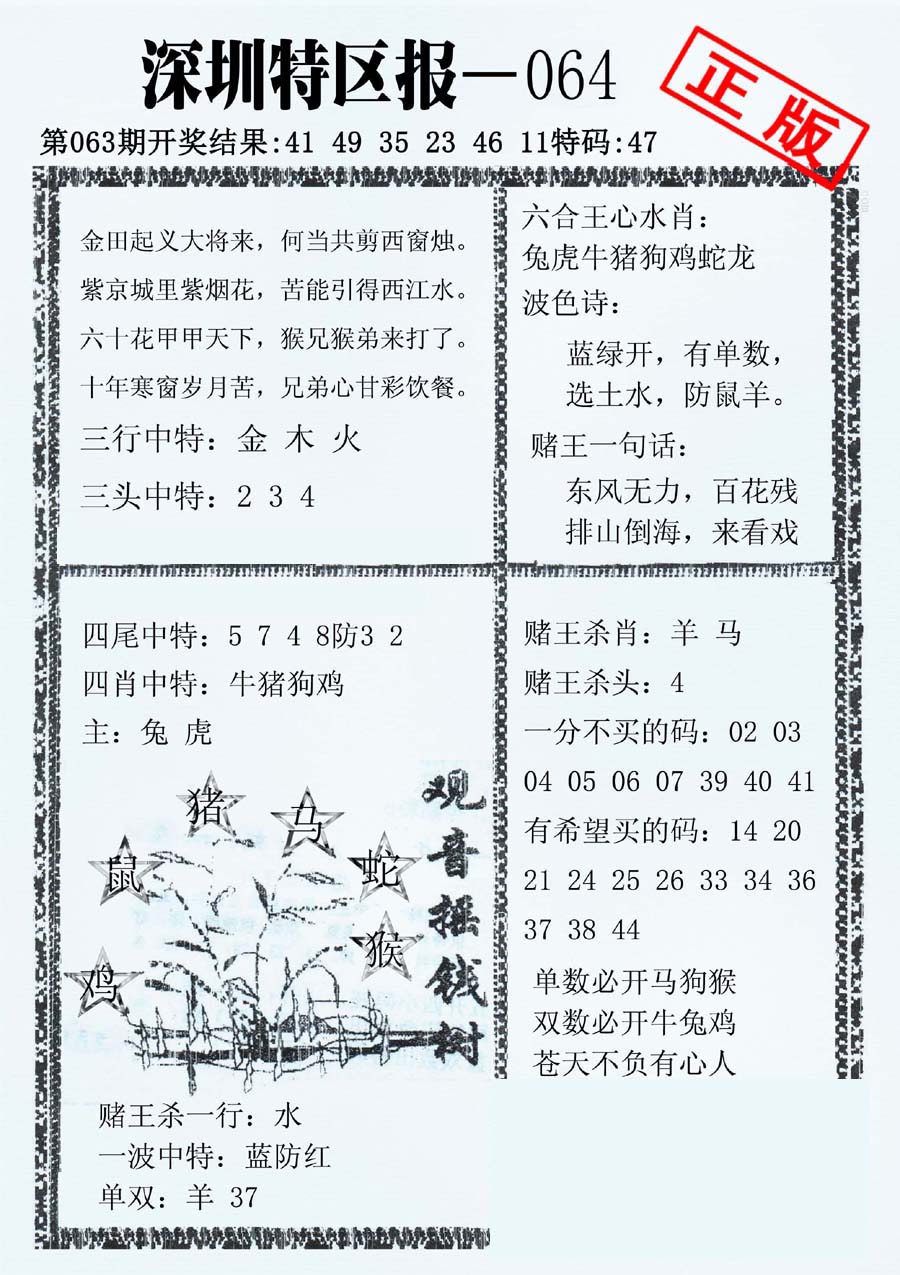 深圳特区报—064
正版
第063期开奖结果:41 49 35 23 46 11特码:47
金田起义大将来，何当共剪西窗烛。
紫京城里紫烟花，苦能引得西江水。
六十花甲甲天下，猴兄猴弟来打了。
十年寒窗岁月苦，兄弟心甘彩饮餐。
三行中特：金 木 火
三头中特：2 3 4
六合王心水肖：
兔虎牛猪狗鸡蛇龙
波色诗：
蓝绿开，有单数，
选土水，防鼠羊。
赌王一句话：
东风无力，百花残
排山倒海，来看戏
四尾中特：5 7 4 8防3 2
四肖中特：牛猪狗鸡
主：兔 虎
猪
马
鼠
蛇
猴
鸡
观音摇钱树
赌王杀一行：水
一波中特：蓝防红
单双：羊 37
赌王杀肖：羊 马
赌王杀头：4
一分不买的码：02 03
04 05 06 07 39 40 41
有希望买的码：14 20
21 24 25 26 33 34 36
37 38 44
单数必开马狗猴
双数必开牛兔鸡
苍天不负有心人